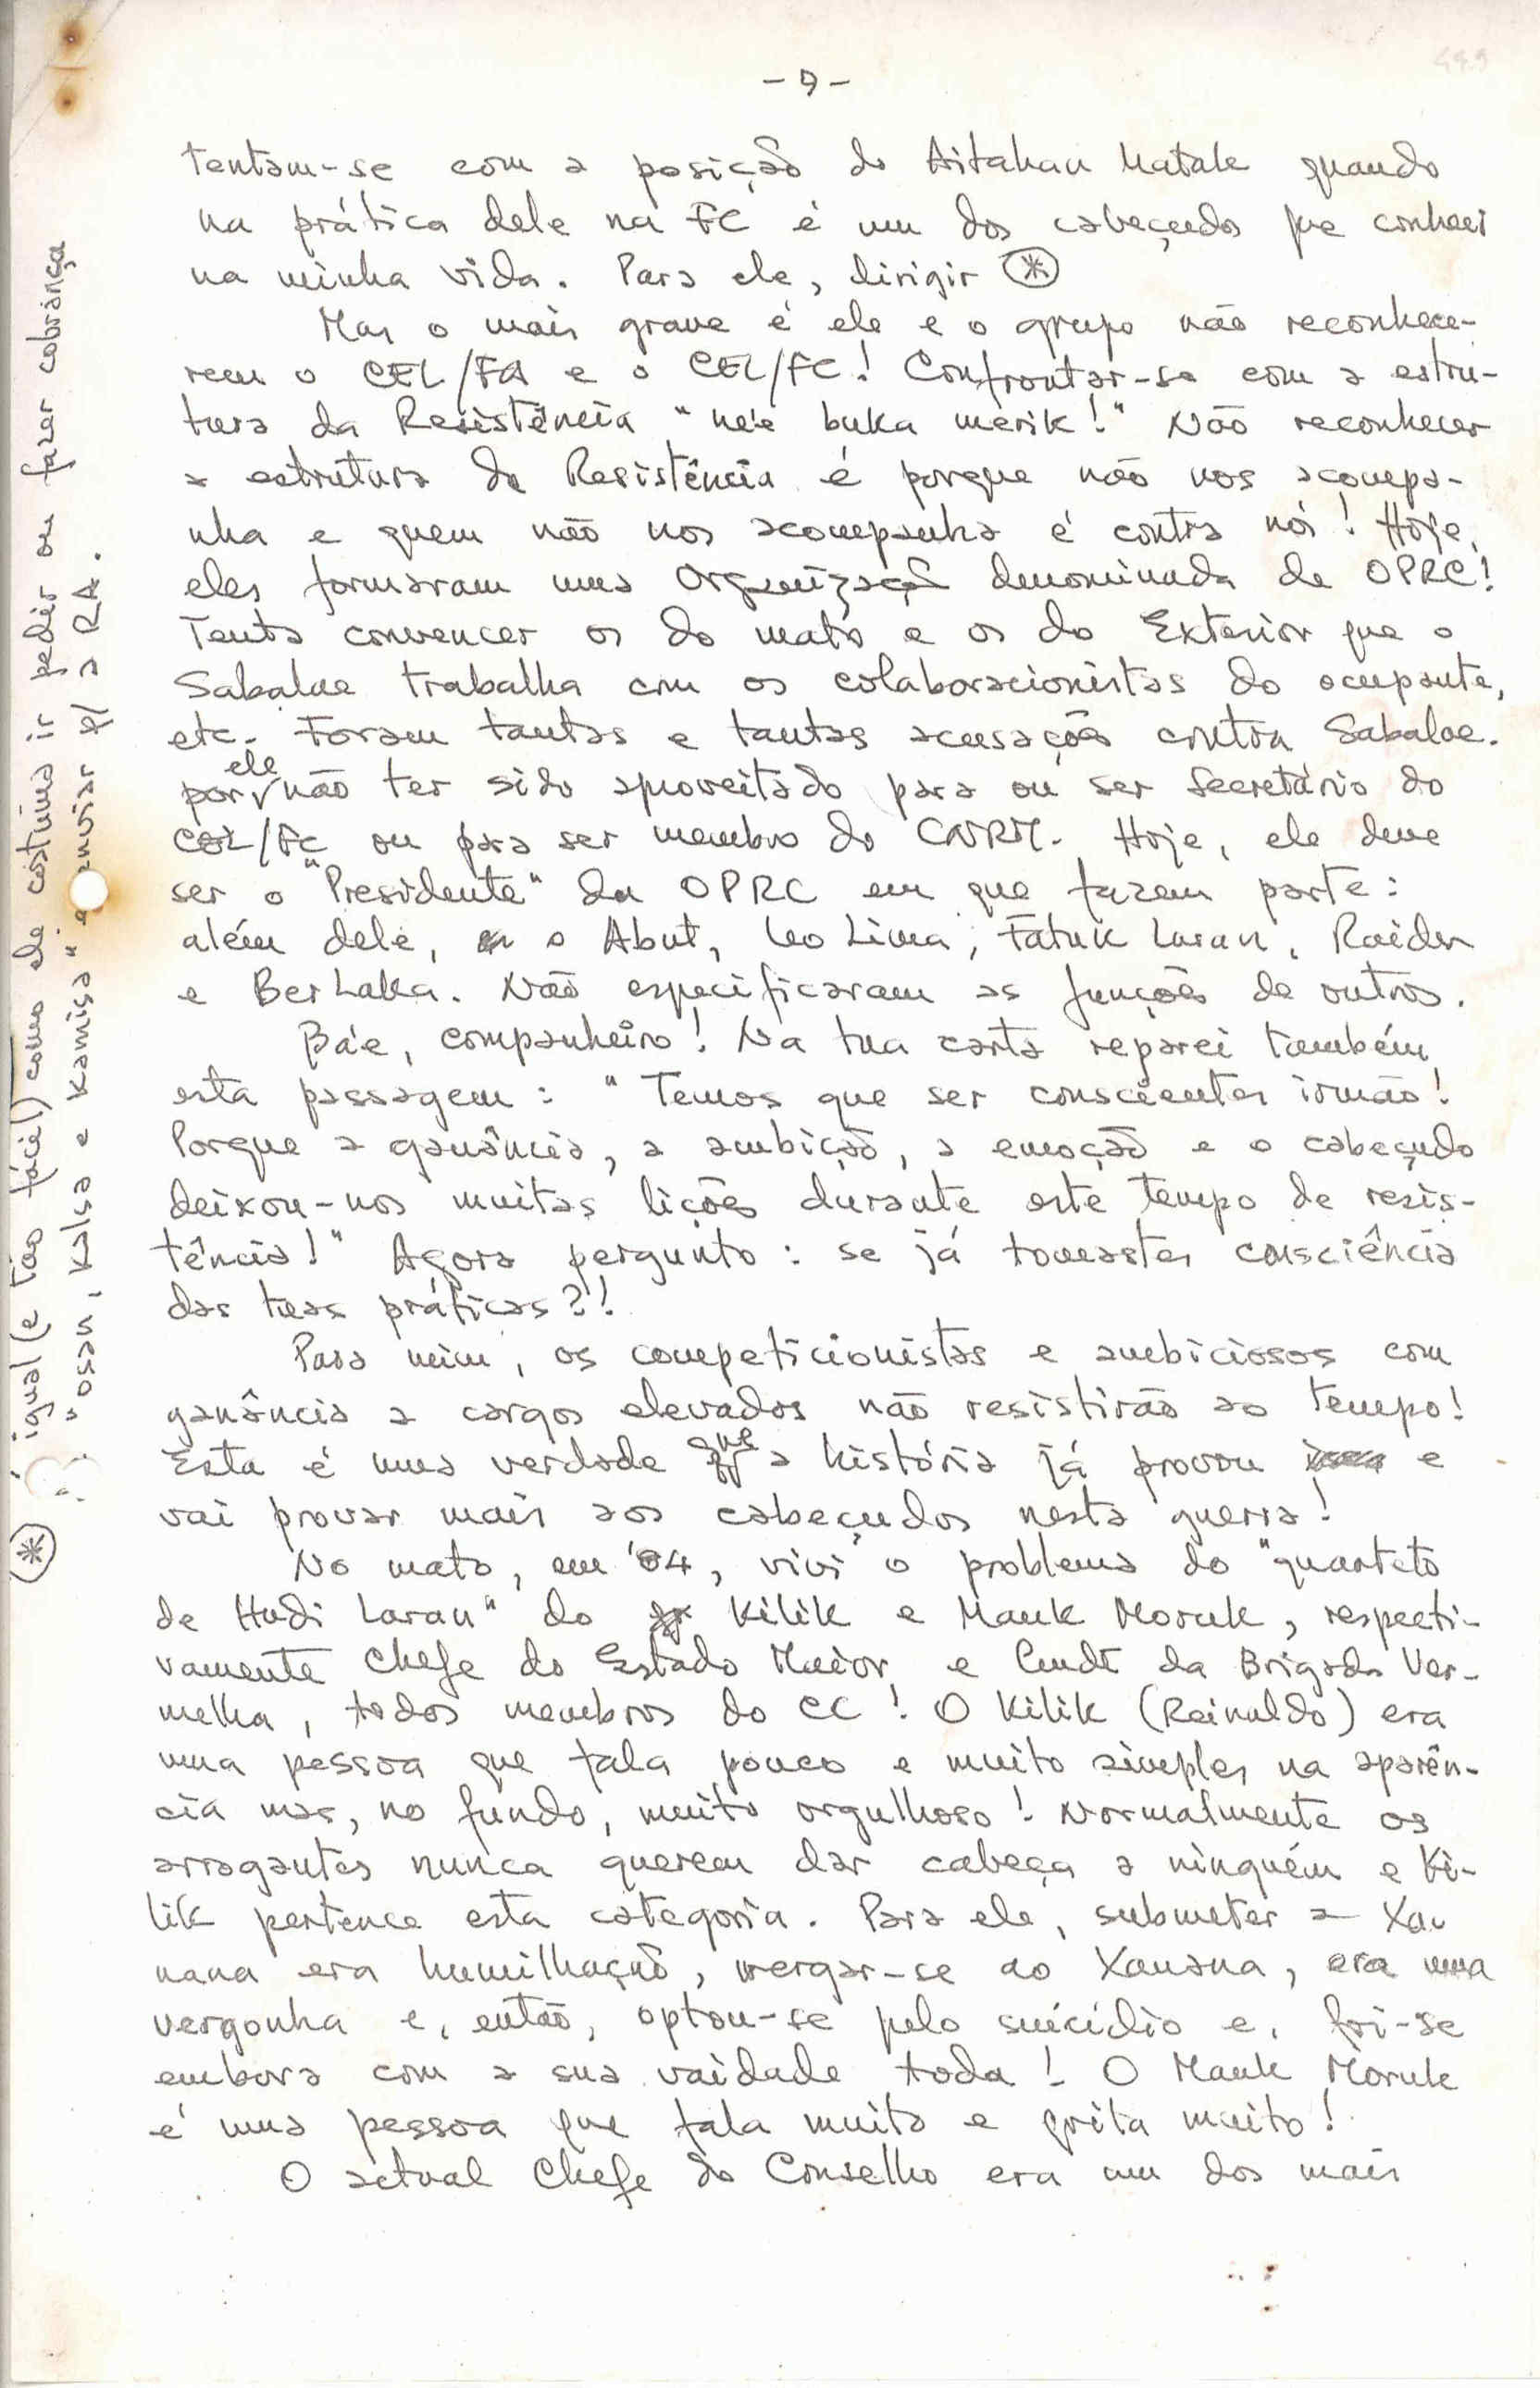 - 9 -
tentam-se com a posição do Aitahan Matak quando
na prática dele na FC é um dos cabeçudos que conheci
na minha vida. Para ele, dirigir (*)
Mas o mais grave é ele e o grupo não reconhece-
rem o CEL/FA e o CEL/FC! Confrontar-se com a estru-
tura da Resistência "ne'e buka merik!" Não reconhecer
a estrutura da Resistência é porque não nos acompa-
nha e quem não nos acompanha é contra nós! Hoje,
eles formaram uma Organização denominada de OPRC!
Tenta convencer os do mato e os do Exterior que o
Sabalae trabalha com os colaboracionistas do ocupante,
etc. Foram tantas e tantas acusações contra Sabalae.
por ele não ter sido aproveitado para ou ser Secretário do
CEL/FC ou para ser membro do CNRM. Hoje, ele deve
ser o "Presidente" da OPRC em que fazem parte:
além dele, o Abut, Leo Lima, Fatuk Laran, Raider
e Ber Laka. Não especificaram as funções de outros.
Bá'e, companheiro! Na tua carta reparei também
esta passagem: "Temos que ser conscientes irmão!
Porque a ganância, a ambição, a emoção e o cabeçudo
deixou-nos muitas lições durante este tempo de resis-
tência!" Agora pergunto: se já tomastes consciência
das tuas práticas?!
Para mim, os competicionistas e ambiciosos com
ganância a cargos elevados não resistirão ao tempo!
Esta é uma verdade que a história já provou e
vai provar mais aos cabeçudos nesta guerra!
No mato, em '84, vivi o problema do "quarteto
de Hudi Laran" do Kilik e Mauk Moruk, respecti-
vamente Chefe do Estado Maior, e Cmdt da Brigada Ver-
melha, todos membros do CC! O Kilik (Reinaldo) era
uma pessoa que fala pouco e muito simples na aparên-
cia mas, no fundo, muito orgulhoso! Normalmente os
arrogantes nunca querem dar cabeça a ninguém e Ki-
lik pertence esta categoria. Para ele, submeter a Xa-
nana era humilhação, vergar-se ao Xanana, era uma
vergonha e, então, optou-se pelo suicídio e, foi-se
embora com a sua vaidade toda! O Mauk Moruk
é uma pessoa que fala muito e grita muito!
O actual Chefe do Conselho era um dos mais
(*) igual (e tão fácil) como ele costuma ir pedir ou fazer cobrança
"osan, kalsa e kamisa" e enviar p/ a RA.